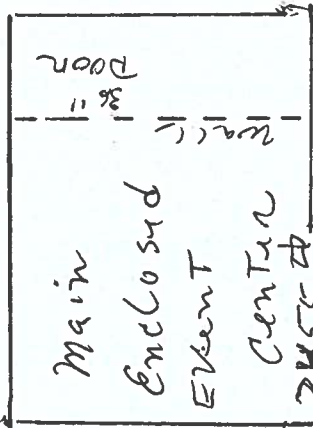 Door
36"
wall
Main
Enclosed
Event
Center